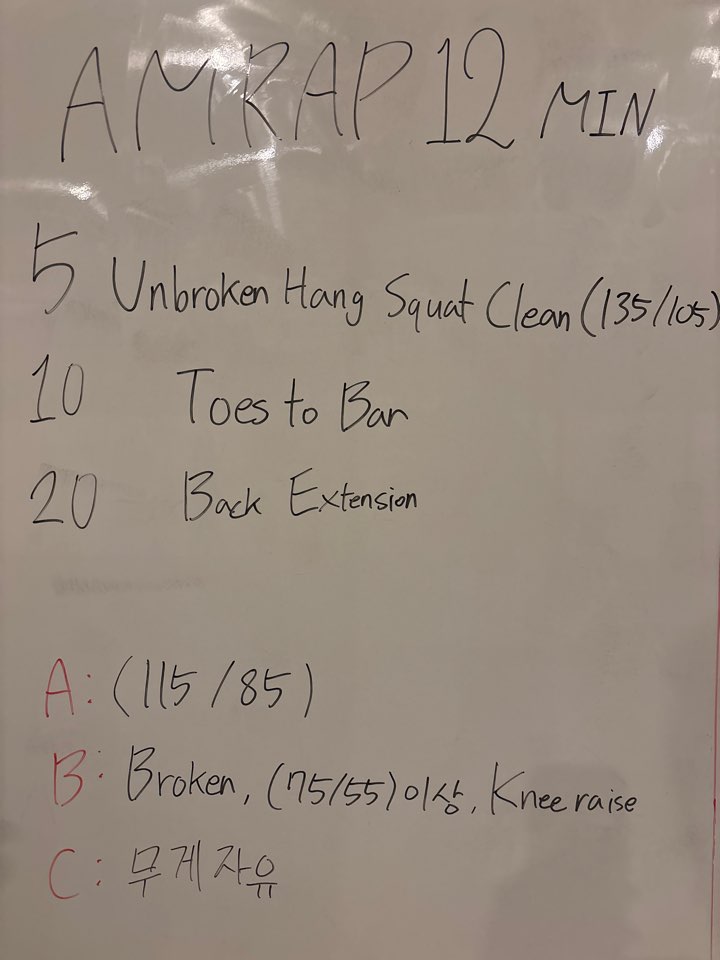 AMRAP 12 MIN
5 Unbroken Hang Squat Clean (135/105)
10 Toes to Bar
20 Back Extension
A: (115/85)
B: Broken, (75/55)이상, Knee raise
C: 무게자유